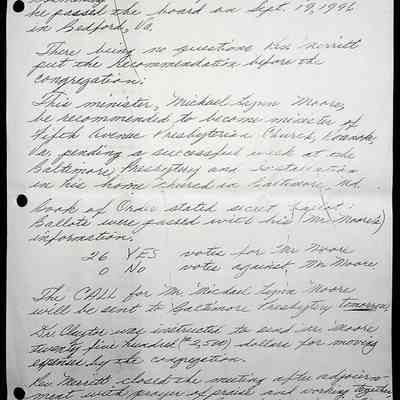 he passed the board on Sept. 19, 1996
in Bedford, Va.
There being no questions Rev. Merritt
put the recommendation before the
congregation:
This minister, Michael Lynn Moore,
be recommended to become minister of
Fifth Avenue Presbyterian Church, Roanoke,
Va, pending a successful week at the
Baltimore Presbytery and
in his home church in Baltimore, Md.
Book of Order stated secret ballot:
Ballots were passed with his (Mr. Moore's)
information.
26 YES votes for Mr Moore
0 No votes against Mr Moore
The CALL for Mr. Michael Lynn Moore
will be sent to Baltimore Presbytery tomorrow.
was instructed to send Mr. Moore
twenty five hundred ($2,500) dollars for moving
expenses by the congregation.
Rev. Merritt closed the meeting after adjourn-
ment with prayer of praise and working together